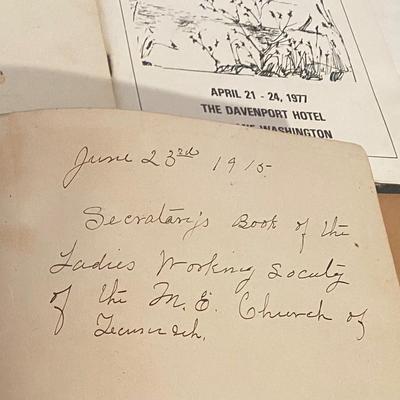 APRIL 21 - 24, 1977
THE DAVENPORT HOTEL
WASHINGTON
June 23rd 1915
Secretary's Book of the
Ladies Working Society
of the M. E. Church of